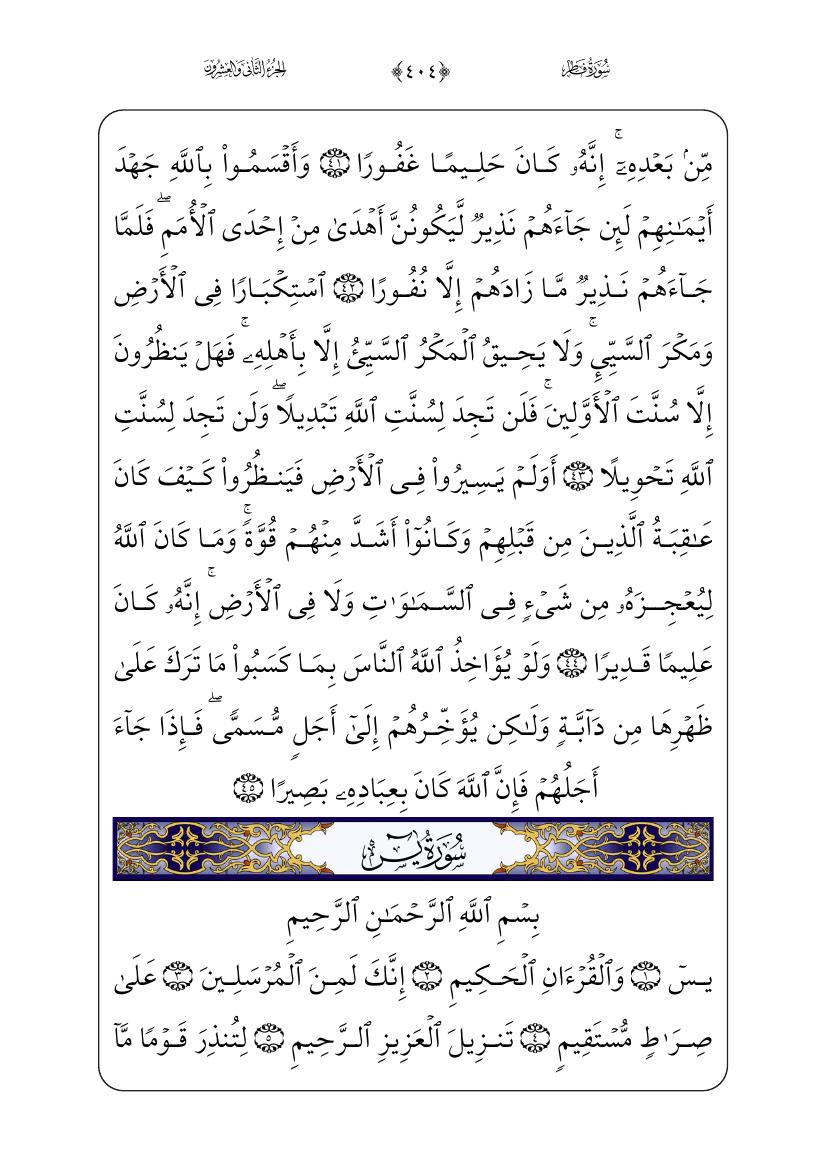 سُورَةُ فَاطِرٍ ﴿٤٠٤﴾ الجُزْءُ الثَّانِي وَالعِشْرُونَ
مِّنۢ بَعۡدِهِۦٓۚ إِنَّهُۥ كَانَ حَلِيمًا غَفُورًا ۝٤١ وَأَقۡسَمُواْ بِٱللَّهِ جَهۡدَ
أَيۡمَٰنِهِمۡ لَئِن جَآءَهُمۡ نَذِيرٞ لَّيَكُونُنَّ أَهۡدَىٰ مِنۡ إِحۡدَى ٱلۡأُمَمِۖ فَلَمَّا
جَآءَهُمۡ نَذِيرٞ مَّا زَادَهُمۡ إِلَّا نُفُورًا ۝٤٢ ٱسۡتِكۡبَارًا فِي ٱلۡأَرۡضِ
وَمَكۡرَ ٱلسَّيِّيِٕۚ وَلَا يَحِيقُ ٱلۡمَكۡرُ ٱلسَّيِّئُ إِلَّا بِأَهۡلِهِۦۚ فَهَلۡ يَنظُرُونَ
إِلَّا سُنَّتَ ٱلۡأَوَّلِينَۚ فَلَن تَجِدَ لِسُنَّتِ ٱللَّهِ تَبۡدِيلٗاۖ وَلَن تَجِدَ لِسُنَّتِ
ٱللَّهِ تَحۡوِيلًا ۝٤٣ أَوَلَمۡ يَسِيرُواْ فِي ٱلۡأَرۡضِ فَيَنظُرُواْ كَيۡفَ كَانَ
عَٰقِبَةُ ٱلَّذِينَ مِن قَبۡلِهِمۡ وَكَانُوٓاْ أَشَدَّ مِنۡهُمۡ قُوَّةٗۚ وَمَا كَانَ ٱللَّهُ
لِيُعۡجِزَهُۥ مِن شَيۡءٖ فِي ٱلسَّمَٰوَٰتِ وَلَا فِي ٱلۡأَرۡضِۚ إِنَّهُۥ كَانَ
عَلِيمٗا قَدِيرًا ۝٤٤ وَلَوۡ يُؤَاخِذُ ٱللَّهُ ٱلنَّاسَ بِمَا كَسَبُواْ مَا تَرَكَ عَلَىٰ
ظَهۡرِهَا مِن دَآبَّةٖ وَلَٰكِن يُؤَخِّرُهُمۡ إِلَىٰٓ أَجَلٖ مُّسَمّٗىۖ فَإِذَا جَآءَ
أَجَلُهُمۡ فَإِنَّ ٱللَّهَ كَانَ بِعِبَادِهِۦ بَصِيرًا ۝٤٥
سُورَةُ يسٓ
بِسۡمِ ٱللَّهِ ٱلرَّحۡمَٰنِ ٱلرَّحِيمِ
يسٓ ۝١ وَٱلۡقُرۡءَانِ ٱلۡحَكِيمِ ۝٢ إِنَّكَ لَمِنَ ٱلۡمُرۡسَلِينَ ۝٣ عَلَىٰ
صِرَٰطٖ مُّسۡتَقِيمٖ ۝٤ تَنزِيلَ ٱلۡعَزِيزِ ٱلرَّحِيمِ ۝٥ لِتُنذِرَ قَوۡمٗا مَّآ